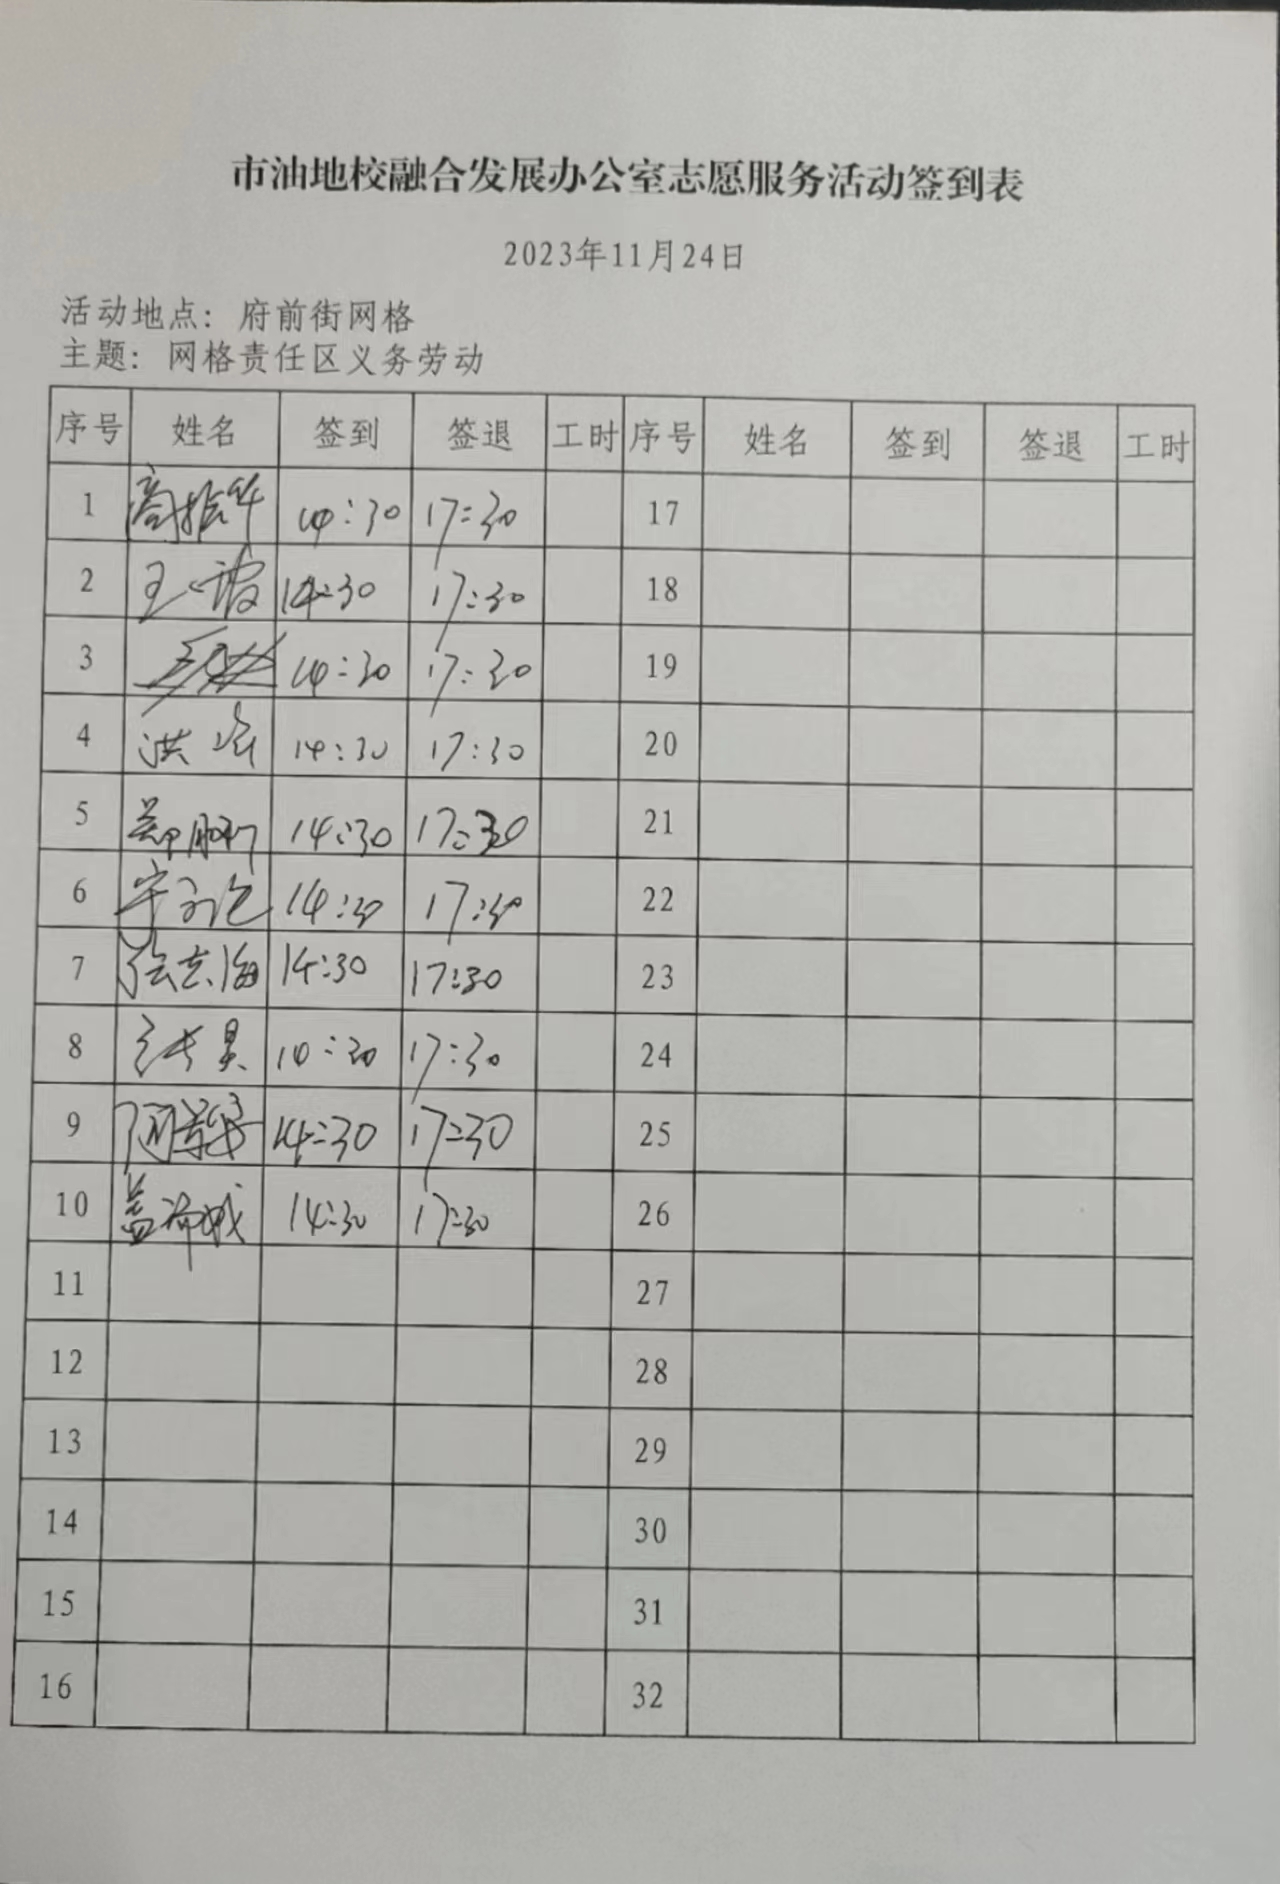 市油地校融合发展办公室志愿服务活动签到表
2023年11月24日
活动地点：府前街网格
主题：网格责任区义务劳动
序号 姓名 签到 签退 工时 序号 姓名 签到 签退 工时
1 14:30 17:30 17
2 王 14:30 17:30 18
3 14:30 17:30 19
4 洪 14:30 17:30 20
5 14:30 17:30 21
6 14:30 17:30 22
7 张志海 14:30 17:30 23
8 14:30 17:30 24
9 14:30 17:30 25
10 盖 14:30 17:30 26
11 27
12 28
13 29
14 30
15 31
16 32